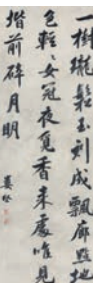 一樹瓏鬆玉刻成飄廊點地
色輕輕女冠夜覓香來處唯見
堦前碎月明
婁堅